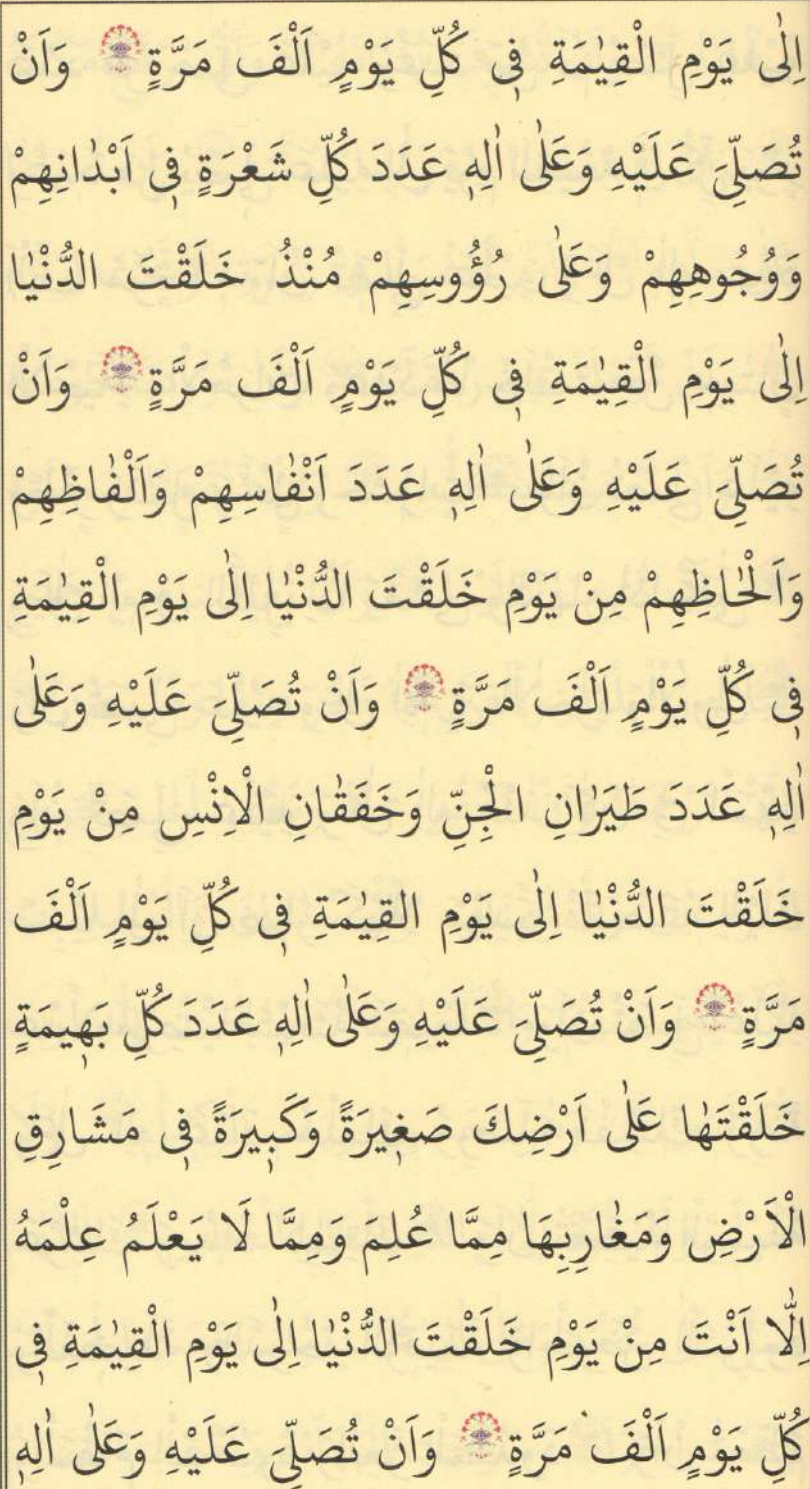 اِلٰى يَوْمِ الْقِيٰمَةِ فِى كُلِّ يَوْمٍ اَلْفَ مَرَّةٍ وَاَنْ
تُصَلِّىَ عَلَيْهِ وَعَلٰى اٰلِهِ عَدَدَ كُلِّ شَعْرَةٍ فِى اَبْدٰانِهِمْ
وَوُجُوهِهِمْ وَعَلٰى رُؤُوسِهِمْ مُنْذُ خَلَقْتَ الدُّنْيٰا
اِلٰى يَوْمِ الْقِيٰمَةِ فِى كُلِّ يَوْمٍ اَلْفَ مَرَّةٍ وَاَنْ
تُصَلِّىَ عَلَيْهِ وَعَلٰى اٰلِهِ عَدَدَ اَنْفٰاسِهِمْ وَاَلْفٰاظِهِمْ
وَاَلْحٰاظِهِمْ مِنْ يَوْمِ خَلَقْتَ الدُّنْيٰا اِلٰى يَوْمِ الْقِيٰمَةِ
فِى كُلِّ يَوْمٍ اَلْفَ مَرَّةٍ وَاَنْ تُصَلِّىَ عَلَيْهِ وَعَلٰى
اٰلِهِ عَدَدَ طَيَرٰانِ الْجِنِّ وَخَفَقٰانِ الْاِنْسِ مِنْ يَوْمِ
خَلَقْتَ الدُّنْيٰا اِلٰى يَوْمِ القِيٰمَةِ فِى كُلِّ يَوْمٍ اَلْفَ
مَرَّةٍ وَاَنْ تُصَلِّىَ عَلَيْهِ وَعَلٰى اٰلِهِ عَدَدَ كُلِّ بَهِيمَةٍ
خَلَقْتَهٰا عَلٰى اَرْضِكَ صَغِيرَةً وَكَبِيرَةً فِى مَشَارِقِ
الْاَرْضِ وَمَغٰارِبِهَا مِمَّا عُلِمَ وَمِمَّا لَا يَعْلَمُ عِلْمَهُ
اِلّٰا اَنْتَ مِنْ يَوْمِ خَلَقْتَ الدُّنْيٰا اِلٰى يَوْمِ الْقِيٰمَةِ فِى
كُلِّ يَوْمٍ اَلْفَ مَرَّةٍ وَاَنْ تُصَلِّىَ عَلَيْهِ وَعَلٰى اٰلِهِ